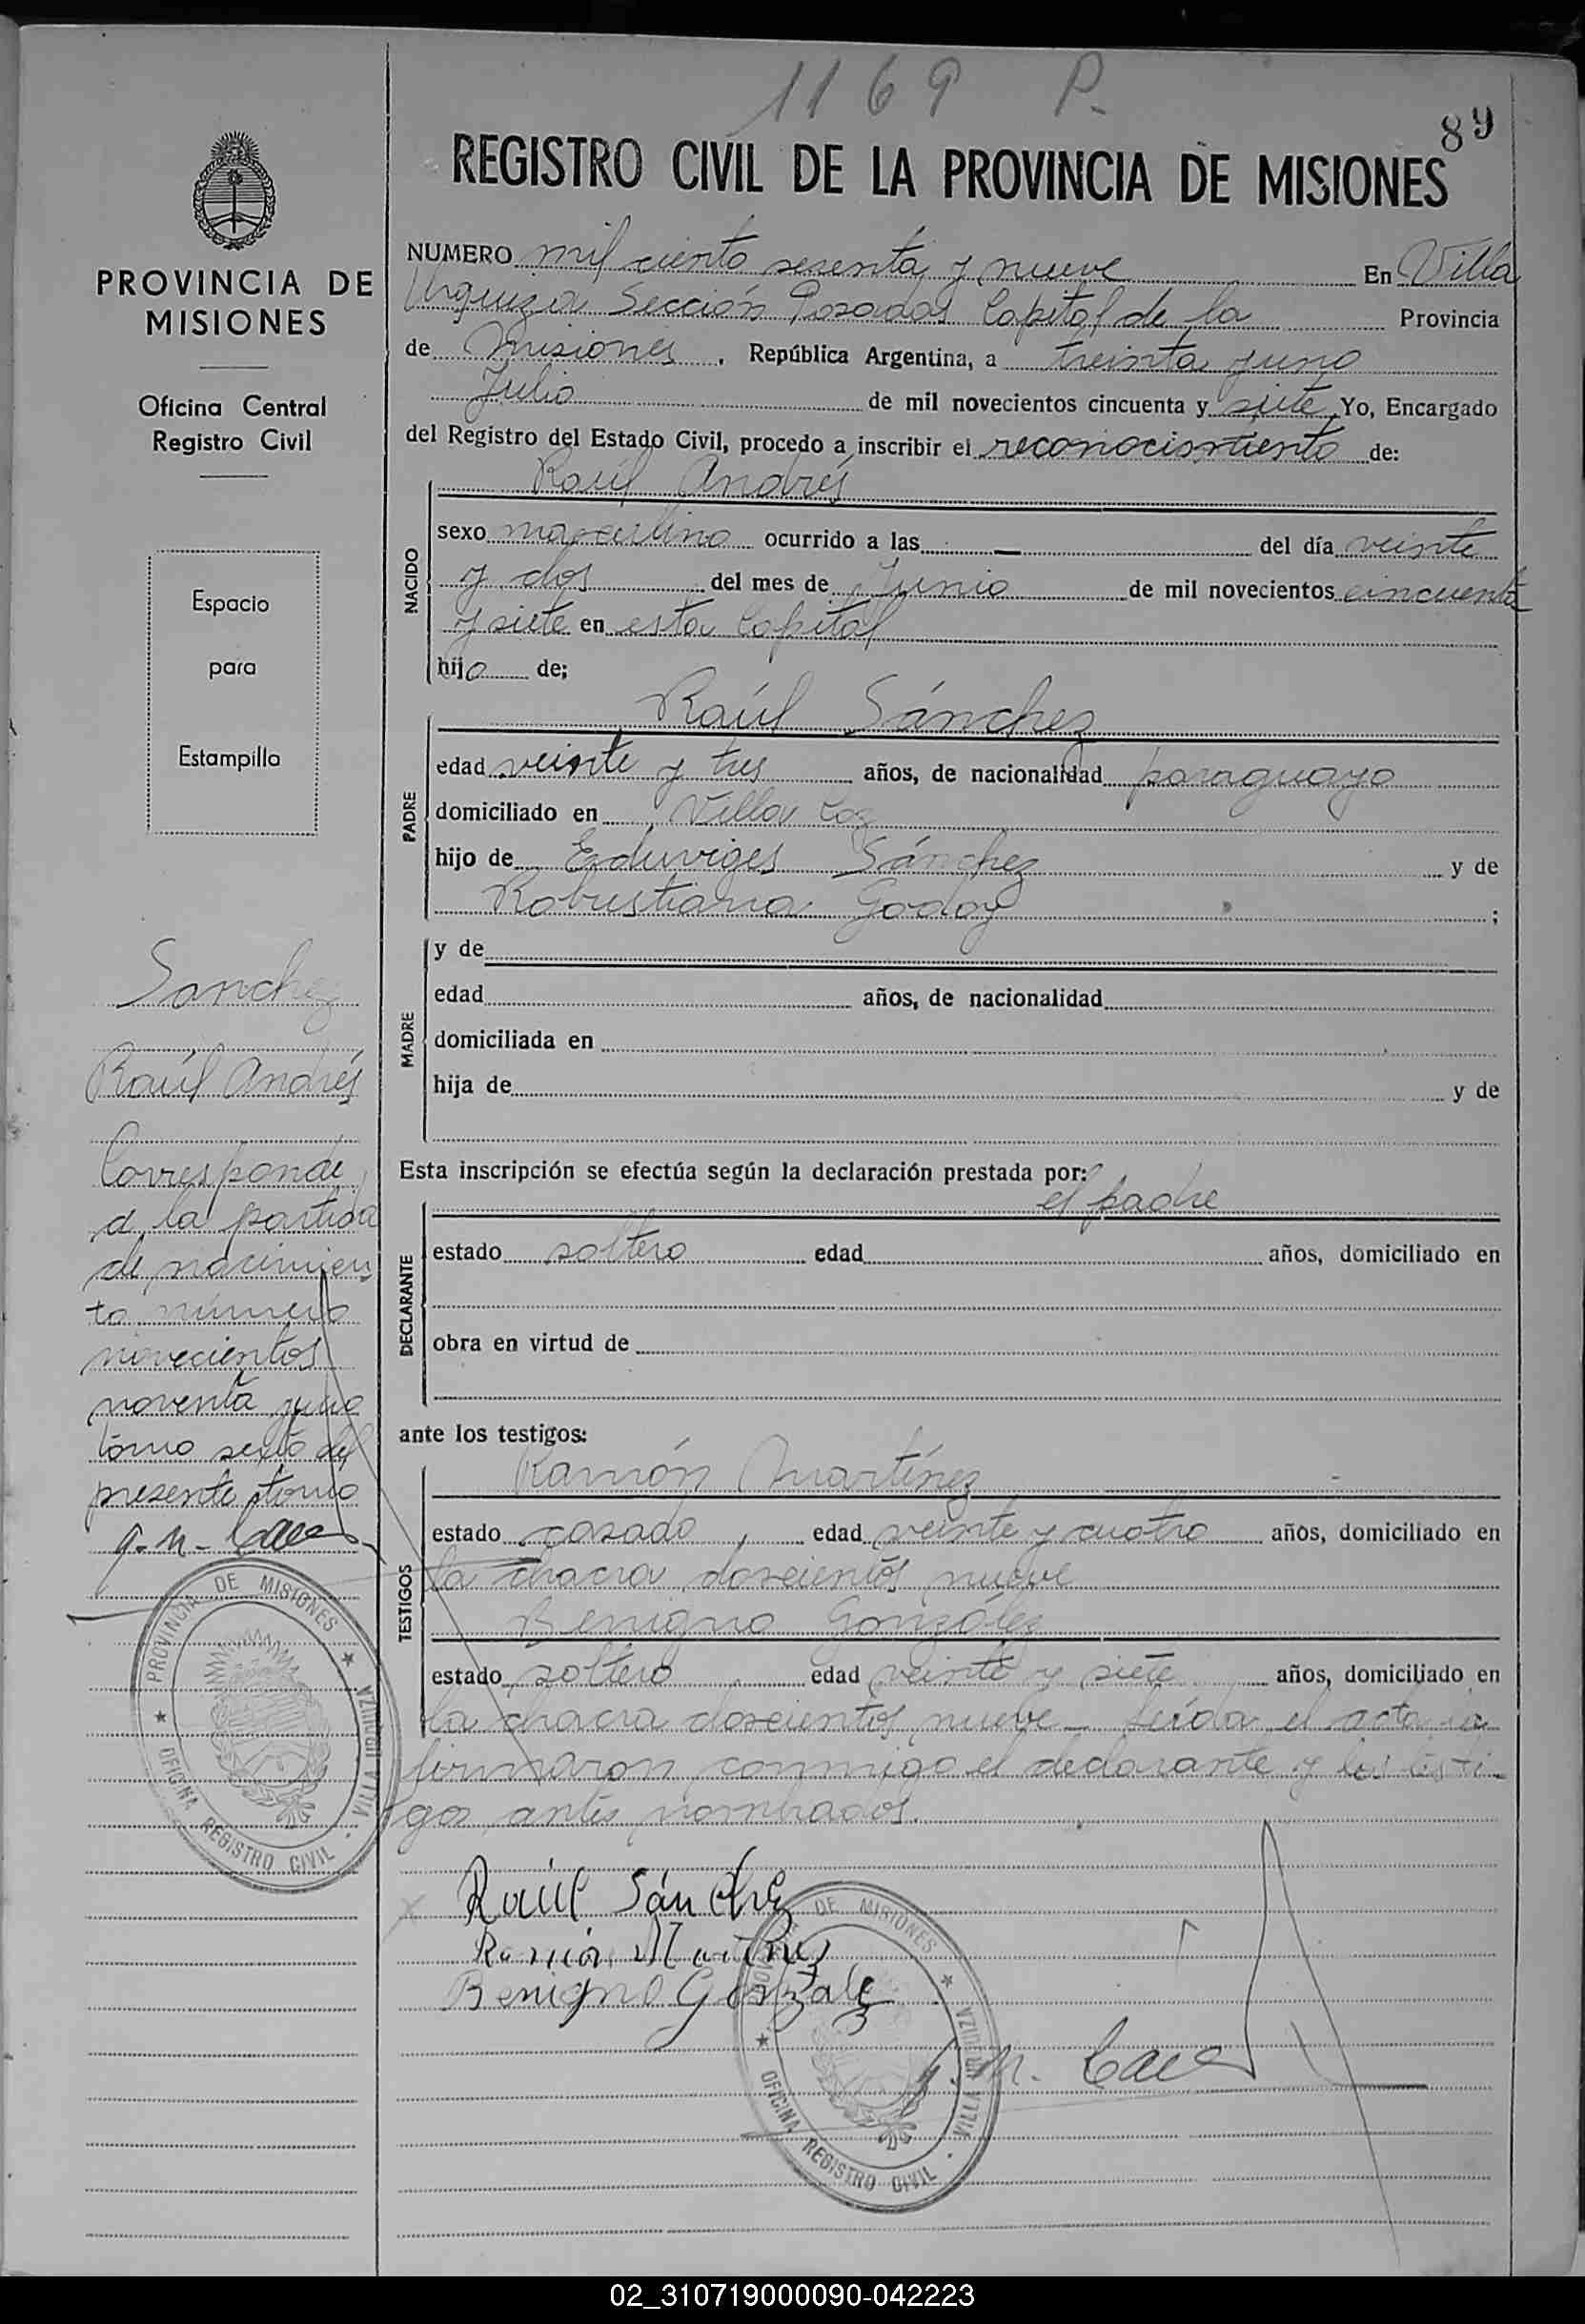 1169 P.
89
REGISTRO CIVIL DE LA PROVINCIA DE MISIONES
PROVINCIA DE
MISIONES
Oficina Central
Registro Civil
Espacio
para
Estampilla
Sanchez
Raúl Andrés
Corresponde
a la partida
de nacimien
to número
novecientos
noventa y uno
tomo sexto del
presente tomo
PROVINCIA DE MISIONES
OFICINA REGISTRO CIVIL
VILLA URQUIZA
NUMERO mil ciento sesenta y nueve En Villa
Urquiza Sección Posadas Capital de la Provincia
de Misiones, República Argentina, a treinta y uno
Julio de mil novecientos cincuenta y siete Yo, Encargado
del Registro del Estado Civil, procedo a inscribir el reconocimiento de:
NACIDO
Raúl Andrés
sexo masculino ocurrido a las — del día veinte
y dos del mes de Junio de mil novecientos cincuenta
y siete en esta Capital
hijo de;
PADRE
Raúl Sánchez
edad veinte y tres años, de nacionalidad paraguayo
domiciliado en Villa
hijo de Eduviges Sánchez y de
Robustiana Godoy ;
MADRE
y de
edad años, de nacionalidad
domiciliada en
hija de y de
Esta inscripción se efectúa según la declaración prestada por:
el padre
DECLARANTE
estado soltero edad años, domiciliado en
obra en virtud de
ante los testigos:
TESTIGOS
Ramón Martínez
estado casado, edad veinte y cuatro años, domiciliado en
la chacra doscientos nueve
Benigno González
estado soltero edad veinte y siete años, domiciliado en
la chacra doscientos nueve_ Leída el acta la
firmaron conmigo el declarante y los testi-
gos antes nombrados.
Raúl Sánchez
Ramón Martínez
Benigno Gonzalez
PROVINCIA DE MISIONES
OFICINA REGISTRO CIVIL
VILLA URQUIZA
02_310719000090-042223